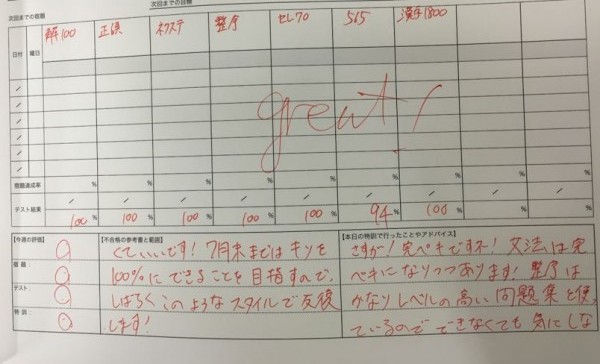 次回までの宿題 次回までの目標
日付 曜日 解100 正誤 ネクステ 整序 セレ70 515 漢字1800
great!
宿題達成率 % % % % % % % %
テスト結果 100% 100% 100% 100% 100% 94% 100% %
【今週の評価】 【不合格の参考書と範囲】 【本日の特訓で行ったことやアドバイス】
くていいです!7月末まではキソを
宿題
100%にできることを目指すので、
テスト
しばらくこのようなスタイルで反復
特訓
します!
さすが!完ペキですネ!文法は完
ペキになりつつあります!整序は
かなりレベルの高い問題集を使っ
ているのでできなくても気にしな